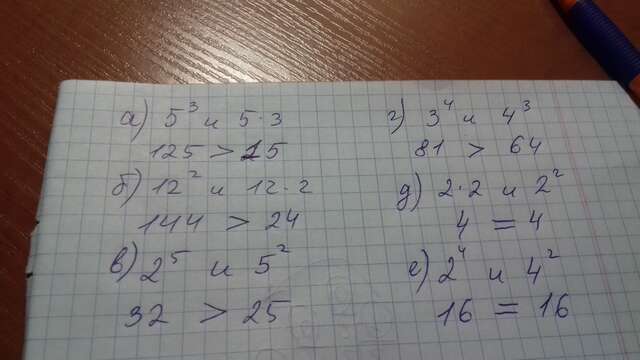 а) 5³ и 5·3
125 > 15
б) 12² и 12·2
144 > 24
в) 2⁵ и 5²
32 > 25
г) 3⁴ и 4³
81 > 64
д) 2·2 и 2²
4 = 4
е) 2⁴ и 4²
16 = 16